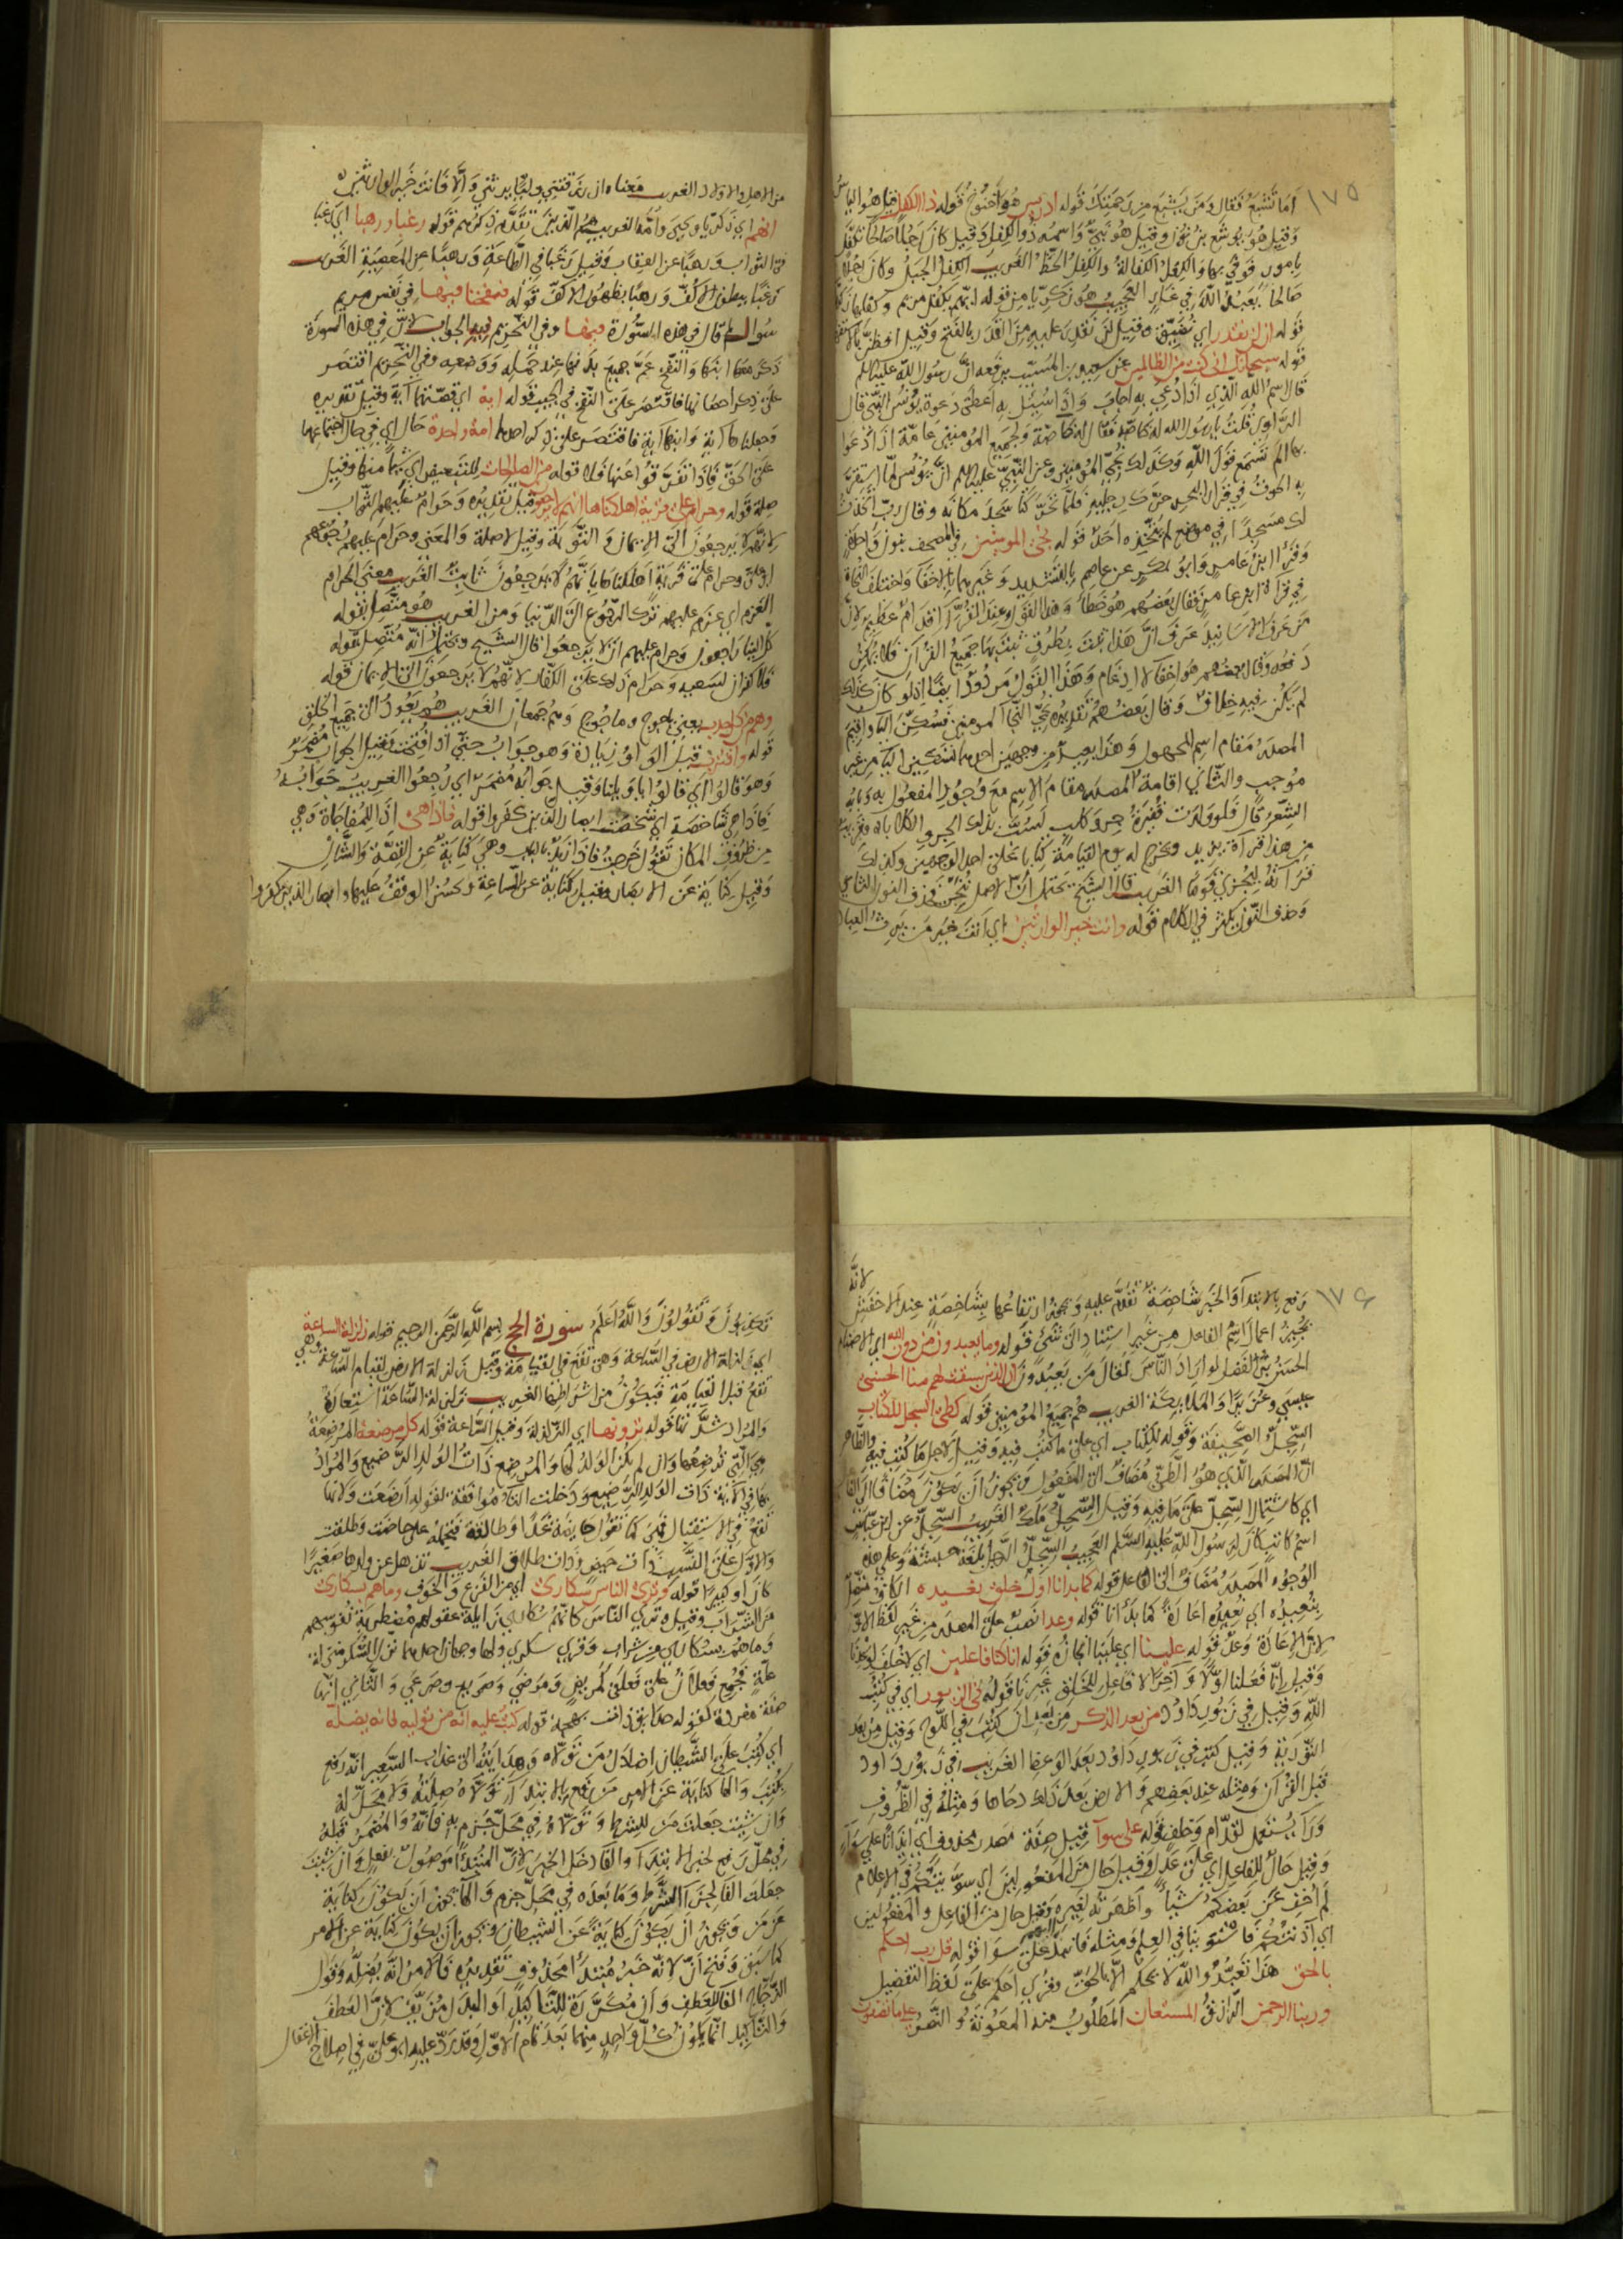 ١٧٥
اما تشبع فقال ومن يشبع من رحمتك قوله ادريس هو اخنوخ قوله ذا الكفل قيل هو الياس
وقيل هو يوشع بن نون وقيل هو نبي واسمه ذو الكفل وقيل كان رجلا صالحا تكفل
بامور فوفى بها والكفل الكفالة والكفل الحظ الغريب الكفل الجبل وكان رجلا
صالحا يعبد الله في غار العجيب هو زكريا من قوله ايهم يكفل مريم وكفلها زكريا
قوله ان لن نقدر اي نضيق وقيل لن نقدر عليه من القدر بالفتح وقيل افظن بالاستفهام
قوله سبحانك اني كنت من الظالمين عن سعيد بن المسيب يرفعه ان رسول الله عليه السلم
قال اسم الله الذي اذا دعي به اجاب واذا سئل به اعطى دعوة يونس النبي قال
الراوي قلت يا رسول الله له خاصة فقال له خاصة ولجميع المؤمنين عامة اذا دعوا
بها الم تسمع قول الله وكذلك ننجي المؤمنين وعن النبي عليه السلم ان يونس لما استقر
به الحوت في قرار البحر حرك رجليه فلما تحرك سجد مكانه وقال رب اتخذت
لك مسجدا في موضع لم يتخذه احد قوله ننجي المومنين في المصحف بنون واحدة
وقرا ابن عامر وابو بكر عن عاصم بالتشديد وغيرهما بالاخفا واختلف النحاة
في قراة ابن عامر فقال بعضهم هو خطأ وهذا القول عند القرا اقدام عظيم لان
من عرف الاسانيد عرف ان هذا ثبت بطرق ثبت بها جميع القرآن فلا يمكن
دفعه وقال بعضهم هو اخفا لا ادغام وهذا القول مردود ايضا اذ لو كان كذلك
لم يكن فيه خلاف وقال بعضهم تقديره نجي النجا المومنين فسكن اليا واقيم
المصدر مقام اسم المجهول وهذا بعيد من وجهين احدهما تسكين اليا من غير
موجب والثاني اقامة المصدر مقام الاسم مع وجود المفعول به وبابه
الشعر قال فلو ولدت قفيرة جرو كلب لسب بذلك الجرو الكلابا وقريب
من هذا قراة يزيد ويخرج له يوم القيامة كتابا على احد الوجهين وكذلك
قراته ليجزي قوما الغريب قال الشيخ يحتمل ان الاصل ننجي فحذف النون الثاني
وحذف النون يكثر في الكلام قوله وانت خير الوارثين اي انت خير من يرث العباد
من الاهل والاولاد الغريب معناه ان رزقتني ولدا يرثني والا فانت خير الوارثين
انهم اي زكريا ويحيى وامه الغريب هم الذين تقدم ذكرهم قوله رغبا ورهبا اي رغبا
في الثواب ورهبا عن العقاب وقيل رغبا في الطاعة ورهبا عن المعصية الغريب
رغبا ببطون الاكف ورهبا بظهور الاكف قوله فنفخنا فيها في نفس مريم
سوال لم قال في هذه السورة فيها وفي التحريم فيه الجواب لان في هذه السورة
ذكرها وابنها والنفخ عم جميع بدنها عند حمله ووضعه وفي التحريم اقتصر
على ذكر احصانها فاقتصر على النفخ في الجيب قوله اية اي قصتهما آية وقيل تقديره
وجعلناها آية وابنها آية فاقتصر على ذكر احدهما امة واحدة حال اي في حال اجتماعها
على الحق فاذا تفرقوا عنها فلا قوله من الصالحات للتبعيض اي شيئا منها وقيل
صلة قوله وحرام على قرية اهلكناها انهم لا يرجعون قيل تقديره وحرام عليهم الثواب
لانهم لا يرجعون الى الايمان والتوبة وقيل لا صلة والمعنى وحرام عليهم رجوعهم
ابو علي وحرام على قرية اهلكناها بانهم لا يرجعون ثابت الغريب معنى الحرام
العزم اي عزم عليهم ترك الرجوع الى الدنيا ومن الغريب هو متصل بقوله
كل الينا راجعون وحرام عليهم ان لا يرجعوا قال الشيخ ويحتمل انه متصل بقوله
فلا كفران لسعيه وحرام ذلك على الكفار لانهم لا يرجعون الى الايمان قوله
وهم من كل حدب يعني ياجوج وماجوج وهم جمعان الغريب هو يعود الى جميع الخلق
قوله واقترب قيل الواو زيادة وهو جواب حتى اذا فتحت وقيل الجواب مضمر
وهو قالوا اي قالوا يا ويلنا وقيل جوابه مضمر اي رجعوا الغريب جوابه
فاذا هي شاخصة اي شخصت ابصار الذين كفروا قوله فاذا هي اذا للمفاجاة وهي
من ظروف المكان تقول خرجت فاذا زيد بالباب وهي كناية عن القصة والشان
وقيل كناية عن الابصار وقيل كناية عن الساعة وحسن الوقف عليها وابصار الذين كفروا
١٧٦
رفع بالابتدآ والخبر شاخصة تقدم عليه ويجوز ارتفاعها بشاخصة عند الاخفش لانه
يجيز اعمال اسم الفاعل من غير استناد الى شئ قوله وما تعبدون من دون الله اي الاصنام
الحسين بن الفضل لو اراد الناس لقال من يعبدون ان الذين سبقت لهم منا الحسنى
عيسى وعزير والملايكة الغريب هم جميع المؤمنين قوله كطي السجل للكتاب
السجل الصحيفة وقوله للكتاب اي على ما كتب فيه وقيل لاجل ما كتب فيه والظاهر
ان المصدر الذي هو الطي مضاف الى المفعول ويجوز ان يكون مضافا الى الفاعل
اي كاشتمال السجل على ما فيه وقيل السجل ملك الغريب السجل عن ابن عباس
اسم كاتب كان لرسول الله عليه السلم العجيب السجل الرجل بلغة حبشة وعلى هذه
الوجوه المصدر مضاف الى الفاعل قوله كما بدانا اول خلق نعيده الكاف متصل
بنعيده اي نعيده اعادة كما بدأنا قوله وعدا نصب على المصدر من غير لفظ الاول
لان الاعادة وعد قوله علينا اي علينا انجازه قوله انا كنا فاعلين اي لا خلف لوعدنا
وقيل انا فعلنا اولا وآخرا لا فاعل للخلق غيرنا قوله في الزبور اي في كتب
الله وقيل في زبور داود من بعد الذكر من بعد ان كتب في اللوح وقيل من بعد
التورية وقيل كتب في زبور داود بعد الوعظ الغريب في زبور داود
قبل القرآن ومثله عند بعضهم والارض بعد ذلك دحاها ومثله في الظروف
ورآ يستعمل لقدام وخلف قوله على سوآ قيل صفة مصدر محذوف اي ايذانا على سوآء
وقيل حال للفاعل اي على عدل وقيل حال من المفعولين اي سويت بينكم في الاعلام
لم اخف عن بعضكم شيأ واظهرته لغيره وقيل حال من الفاعل والمفعولين
اي آذنتكم فاستوينا في العلم ومثله فانبذ اليهم على سوا قوله قل رب احكم
بالحق هذا تعبد والله لا يحكم الا بالحق وقرى احكم على لفظ التفضيل
وربنا الرحمن الرازق المستعان المطلوب منه المعونة والنصر على ما تصفون
تكذبون وتقولون والله اعلم سورة الحج بسم الله الرحمن الرحيم قوله زلزلة الساعة
اي زلزلة الارض في الساعة وهي تقع في القيامة وقيل زلزلة الارض لقيام الساعة وهي
تقع قبل القيامة فيكون من اشراطها الغريب زلزلة الساعة استعارة
والمراد شدتها قوله ترونها اي الزلزلة وقيل الساعة قوله كل مرضعة المرضعة
هي التي ترضعها وان لم يكن الولد لها والمرضع ذات الولد الرضيع والمراد
بها في الآية ذات الولد الرضيع ودخلت التاء موافقة لقوله ارضعت ولانها
تقع في الاستقبال فهي كما تقول حايضة غدا وطالقة فتحمله على حاضت وطلقت
والاول على النسب ذات حيض وذات طلاق الغريب تذهل عن ولدها صغيرا
كان او كبيرا قوله وترى الناس سكارى اي من الفزع والخوف وما هم بسكارى
من الشراب وقيل ترى الناس كانهم سكارى زايلة عقولهم مضطربة نفوسهم
وما هم بسكارى من شراب وقرى سكرى ولها وجهان احدهما نزل السكر منزلة
علة فجمع فعلان على فعلى كمريض ومرضى وصريع وصرعى والثاني انها
صفة مفردة كقوله حدايق ذات بهجة قوله كتب عليه انه من توليه فانه يضله
اي كتب على الشيطان اضلال من تولاه وهدايته الى عذاب السعير انه رفع
بكتب والها كناية عن الامر من رفع بالابتدآ تولاه صلته ولا محل له
وان شئت جعلت من للشرط وتولاه في محل جزم به فانه والمضمر قبله
في محل رفع لخبر الابتدآ والفا دخل الخبر لان المبتدأ موصول بفعل وان شئت
جعلت الفا لجزآ الشرط وما بعده في محل جزم والها يجوز ان يكون كناية
عن من ويجوز ان يكون كناية عن الشيطان ويجوز ان يكون كناية عن الامر
كما سبق وفتح ان لانه خبر مبتدأ محذوف تقديره فالامر انه يضله وقول
الزجاج الفا للعطف وان مكررة للتاكيد او البدل مزيف لان العطف
والتاكيد انما يكون كل واحد منهما بعد تمام الاول وقد رد عليه ابو علي في اصلاح الاغفال